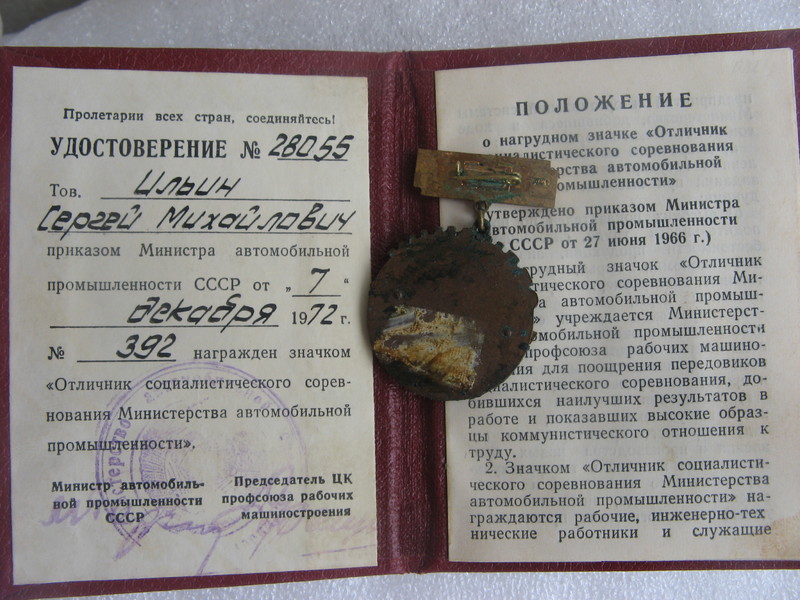 Пролетарии всех стран, соединяйтесь!
УДОСТОВЕРЕНИЕ № 28055
Тов. Ильин
Сергей Михайлович
приказом Министра автомобильной
промышленности СССР от „ 7 “
декабря 1972 г.
№ 392 награжден значком
«Отличник социалистического сорев-
нования Министерства автомобильной
промышленности».
Министр автомобиль-
ной промышленности
СССР
Председатель ЦК
профсоюза рабочих
машиностроения
ПОЛОЖЕНИЕ
о нагрудном значке «Отличник
социалистического соревнования
автомобильной
промышленности»
утверждено приказом Министра
автомобильной промышленности
СССР от 27 июня 1966 г.)
значок «Отличник
соревнования Ми-
автомобильной промыш-
учреждается Министерст-
промышленности
профсоюза рабочих машино-
для поощрения передовиков
социалистического соревнования, до-
бившихся наилучших результатов в
работе и показавших высокие образ-
цы коммунистического отношения к
труду.
2. Значком «Отличник социалисти-
ческого соревнования Министерства
автомобильной промышленности» на-
граждаются рабочие, инженерно-тех
нические работники и служащие